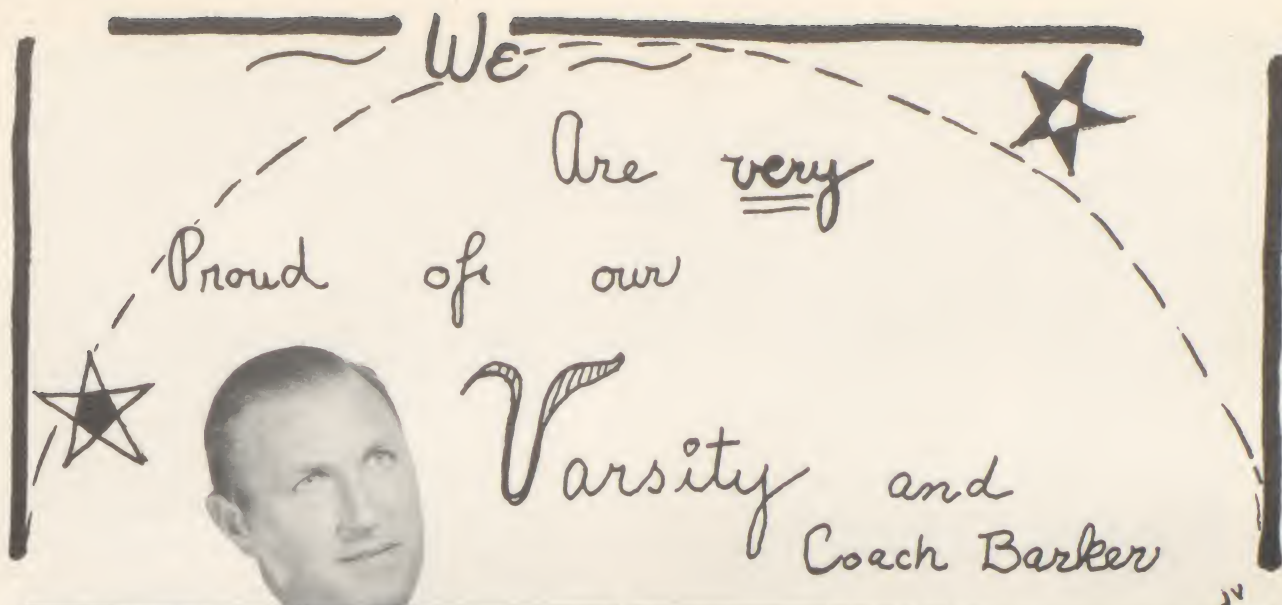 We
Are very
Proud of our
Varsity and
Coach Barker